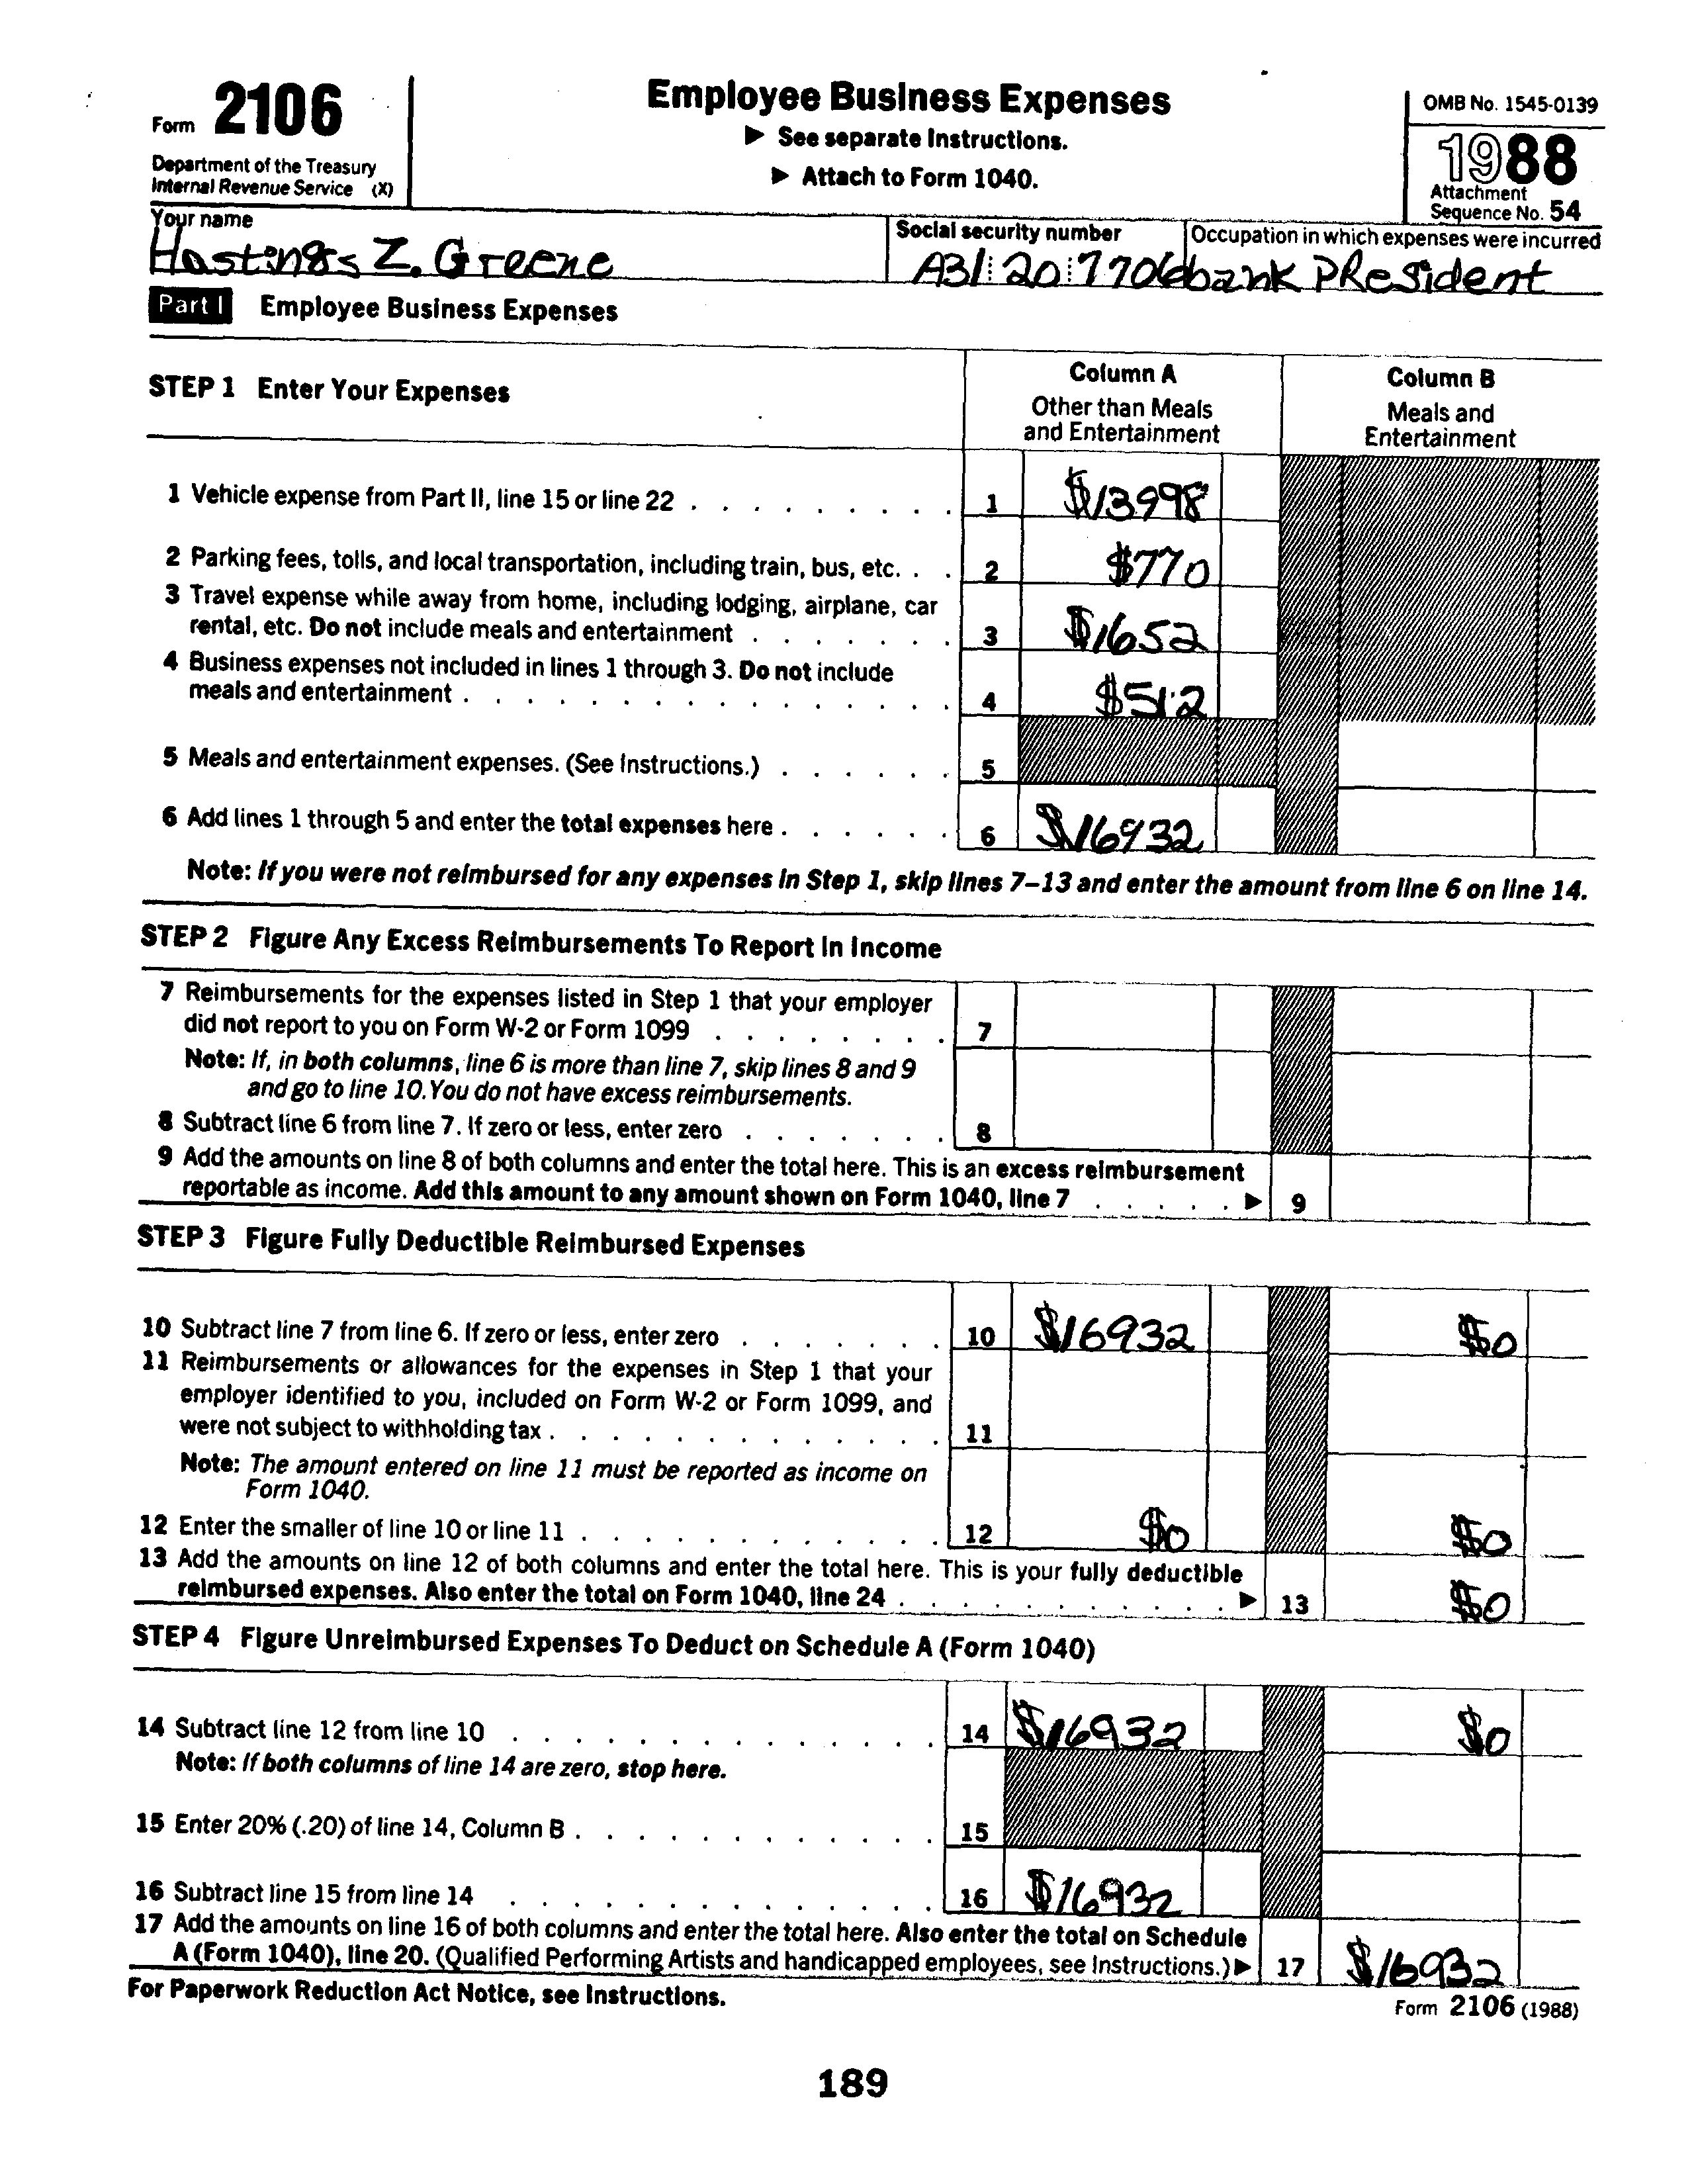 Form 2106
Department of the Treasury
Internal Revenue Service (X)
Employee Business Expenses
▶ See separate Instructions.
▶ Attach to Form 1040.
OMB No. 1545-0139
1988
Attachment
Sequence No. 54
Your name
Hastings Z. Greene
Social security number
A31:20:7706
Occupation in which expenses were incurred
bank PResident
Part I Employee Business Expenses
STEP 1 Enter Your Expenses
Column A
Other than Meals
and Entertainment
Column B
Meals and
Entertainment
1 Vehicle expense from Part II, line 15 or line 22 . . . . . . . . . 1 $13998
2 Parking fees, tolls, and local transportation, including train, bus, etc. . . 2 $770
3 Travel expense while away from home, including lodging, airplane, car
rental, etc. Do not include meals and entertainment . . . . . . . 3 $1652
4 Business expenses not included in lines 1 through 3. Do not include
meals and entertainment . . . . . . . . . . . . . . . 4 $512
5 Meals and entertainment expenses. (See Instructions.) . . . . . . 5
6 Add lines 1 through 5 and enter the total expenses here . . . . . . 6 $16932
Note: If you were not reimbursed for any expenses in Step 1, skip lines 7–13 and enter the amount from line 6 on line 14.
STEP 2 Figure Any Excess Reimbursements To Report In Income
7 Reimbursements for the expenses listed in Step 1 that your employer
did not report to you on Form W-2 or Form 1099 . . . . . . . . 7
Note: If, in both columns, line 6 is more than line 7, skip lines 8 and 9
and go to line 10. You do not have excess reimbursements.
8 Subtract line 6 from line 7. If zero or less, enter zero . . . . . . . 8
9 Add the amounts on line 8 of both columns and enter the total here. This is an excess reimbursement
reportable as income. Add this amount to any amount shown on Form 1040, line 7 . . . . . ▶ 9
STEP 3 Figure Fully Deductible Reimbursed Expenses
10 Subtract line 7 from line 6. If zero or less, enter zero . . . . . . . 10 $16932 $0
11 Reimbursements or allowances for the expenses in Step 1 that your
employer identified to you, included on Form W-2 or Form 1099, and
were not subject to withholding tax . . . . . . . . . . . . . 11
Note: The amount entered on line 11 must be reported as income on
Form 1040.
12 Enter the smaller of line 10 or line 11 . . . . . . . . . . . . 12 $0 $0
13 Add the amounts on line 12 of both columns and enter the total here. This is your fully deductible
reimbursed expenses. Also enter the total on Form 1040, line 24 . . . . . . . . . . . ▶ 13 $0
STEP 4 Figure Unreimbursed Expenses To Deduct on Schedule A (Form 1040)
14 Subtract line 12 from line 10 . . . . . . . . . . . . . . 14 $16932 $0
Note: If both columns of line 14 are zero, stop here.
15 Enter 20% (.20) of line 14, Column B . . . . . . . . . . . . 15
16 Subtract line 15 from line 14 . . . . . . . . . . . . . . 16 $16932
17 Add the amounts on line 16 of both columns and enter the total here. Also enter the total on Schedule
A (Form 1040), line 20. (Qualified Performing Artists and handicapped employees, see Instructions.) ▶ 17 $16932
For Paperwork Reduction Act Notice, see Instructions.
Form 2106 (1988)
189